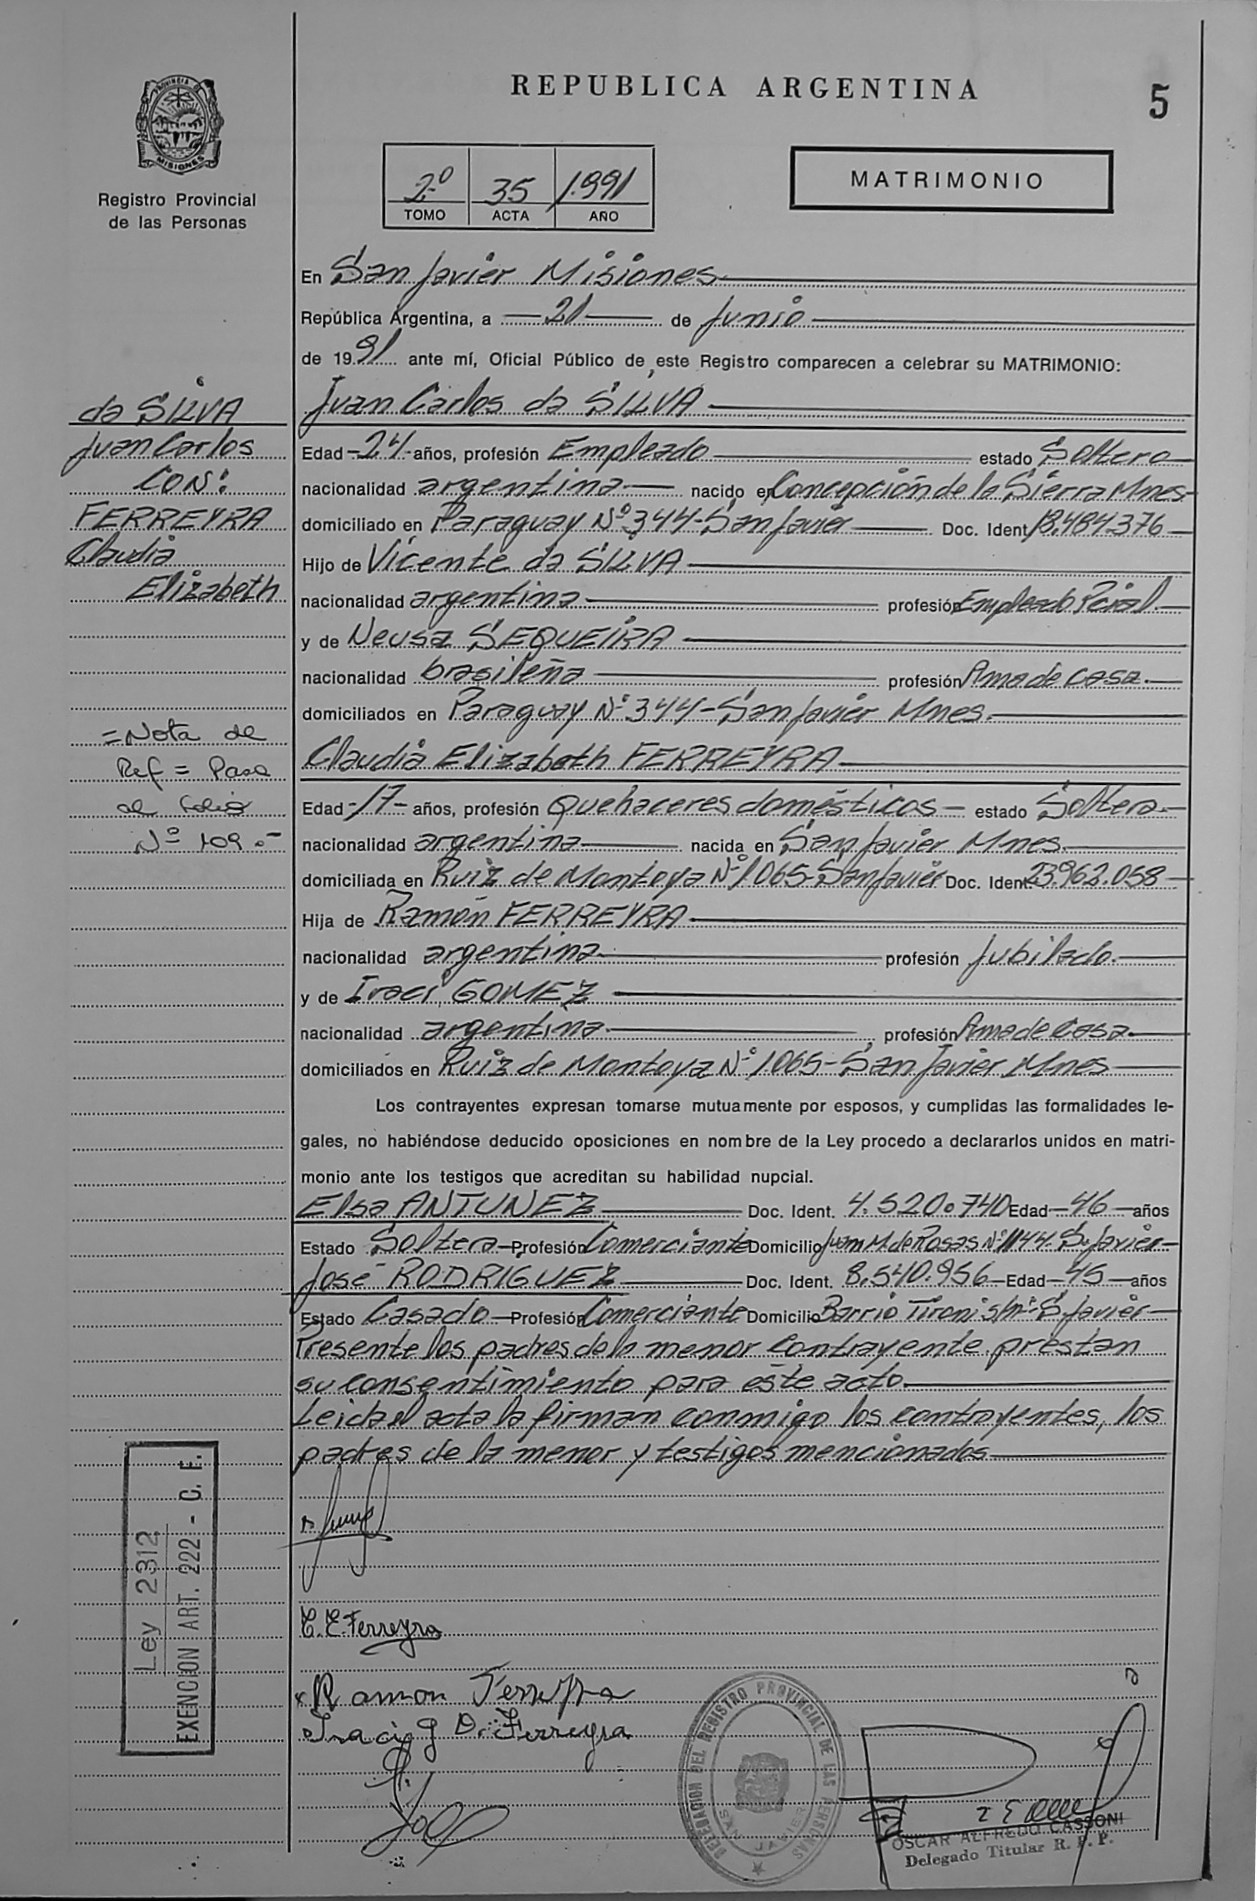 REPUBLICA ARGENTINA
5
PROVINCIA DE
MISIONES
Registro Provincial
de las Personas
2º 35 1.991
TOMO ACTA AÑO
MATRIMONIO
En San Javier Misiones
República Argentina, a 21 de Junio
de 1991 ante mí, Oficial Público de este Registro comparecen a celebrar su MATRIMONIO:
da SILVA
Juan Carlos
CON:
FERREYRA
Claudia
Elizabeth
=Nota de
Ref = Pasa
al folio
Nº 109.-
Juan Carlos da SILVA
Edad -24- años, profesión Empleado estado Soltero
nacionalidad argentina nacido en Concepción de la Sierra Mnes
domiciliado en Paraguay Nº 344-San Javier Doc. Ident 18.484.376
Hijo de Vicente da SILVA
nacionalidad argentina profesión Empleado Pcial.
y de Neusa SEQUEIRA
nacionalidad brasileña profesión Ama de casa.
domiciliados en Paraguay Nº 344-San Javier Mnes.
Claudia Elizabeth FERREYRA
Edad -17- años, profesión Quehaceres domésticos estado Soltera
nacionalidad argentina nacida en San Javier Mnes.
domiciliada en Ruiz de Montoya Nº 1065-San Javier Doc. Ident 23.962.058
Hija de Ramón FERREYRA
nacionalidad argentina profesión Jubilado.
y de Iraci GOMEZ
nacionalidad argentina profesión Ama de casa
domiciliados en Ruiz de Montoya Nº 1065-San Javier Mnes
Los contrayentes expresan tomarse mutuamente por esposos, y cumplidas las formalidades le-
gales, no habiéndose deducido oposiciones en nombre de la Ley procedo a declararlos unidos en matri-
monio ante los testigos que acreditan su habilidad nupcial.
Elsa ANTUNEZ Doc. Ident. 4.520.740 Edad 46 años
Estado Soltera Profesión Comerciante Domicilio Juan M. de Rosas Nº 1144 S. Javier
José RODRIGUEZ Doc. Ident. 8.540.956 Edad 45 años
Estado Casado Profesión Comerciante Domicilio Barrio Tironi s/nº S. Javier
Presente los padres de la menor contrayente prestan
su consentimiento para este acto.
Leida el acta la firman conmigo los contrayentes, los
padres de la menor y testigos mencionados
Ley 2312
EXENCION ART. 222 - C. F.
C. E. Ferreyra
Ramon Ferreyra
Iraci G D. Ferreyra
DELEGACION DEL REGISTRO PROVINCIAL DE LAS PERSONAS
SAN JAVIER
OSCAR ALFREDO CASSONI
Delegado Titular R. P. P.